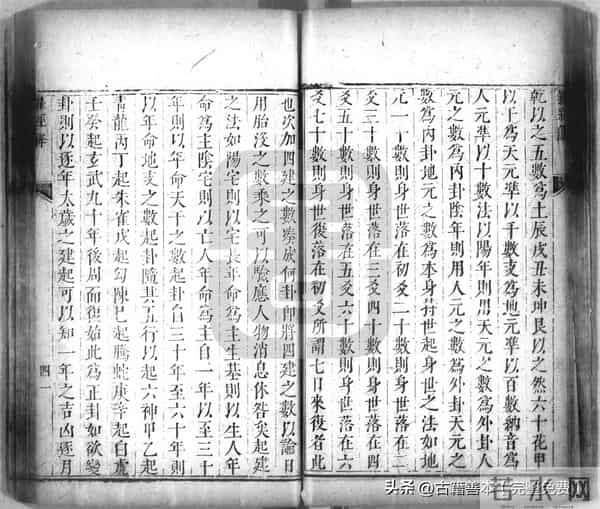 乾以之五數爲土辰戌丑未坤艮以之然六十花甲
以干爲天元準以千數支爲地元準以百數納音爲
人元準以十數法以陽年則用天元之數爲外卦人
元之數爲內卦陰年則用人元之數爲外卦天元之
數爲內卦地元之數爲本身持世起身世之法如地
元一十數則身世落在初爻二十數則身世落在二
爻三十數則身世落在三爻四十數則身世落在四
爻五十數則身世落在五爻六十數則身世落在六
爻七十數則身世復落在初爻所謂七日來復者此
也次加四建之數湊成何卦即將四建之數以論日
用胎沒之數乘之可以驗應人物消息休咎矣起建
之法如陽宅則以宅長年命爲主生基則以生人年
命爲主陰宅則以亡人年命爲主自一年以至三十
年則以年命天干之數起卦自三十年至六十年則
以年命地支之數起卦隨其五行以起六神甲乙起
青龍丙丁起朱雀戊起勾陳巳起騰蛇庚辛起白虎
壬癸起玄武九十年後周而復始此爲正卦如欲變
卦則以逐年太歲之建起可以知一年之吉凶逐月
四一
頭条 @古籍善本